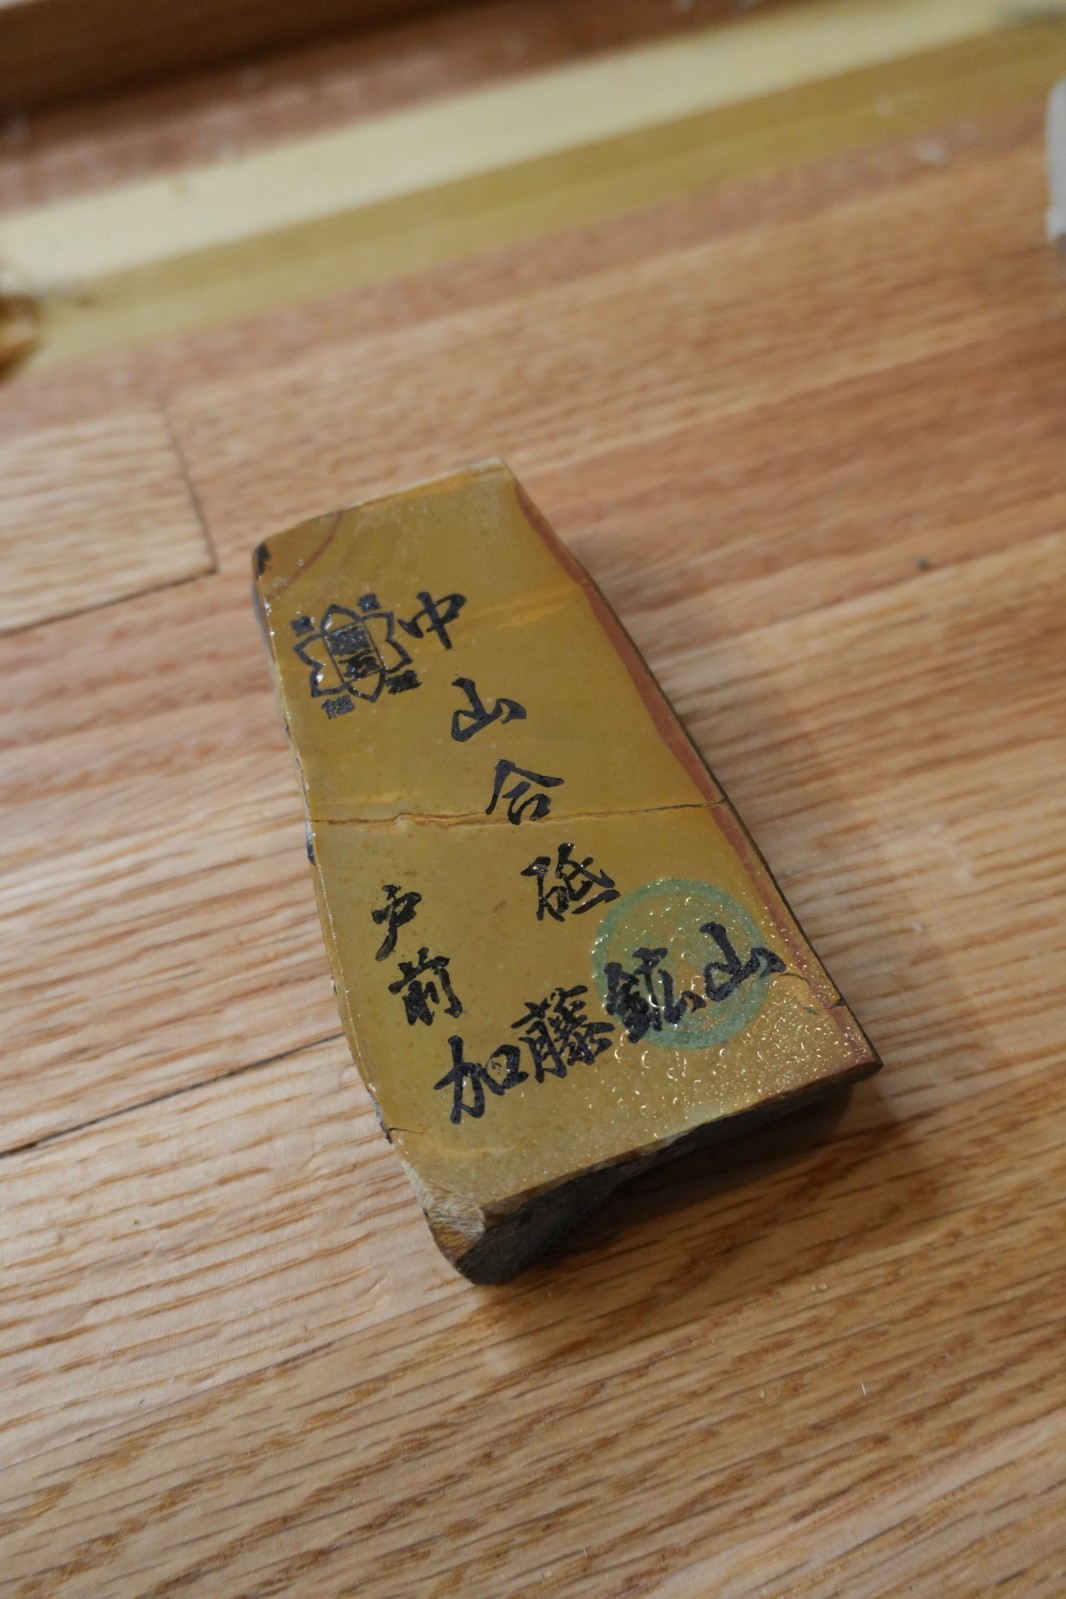 中山合砥
戸前
加藤鉱山